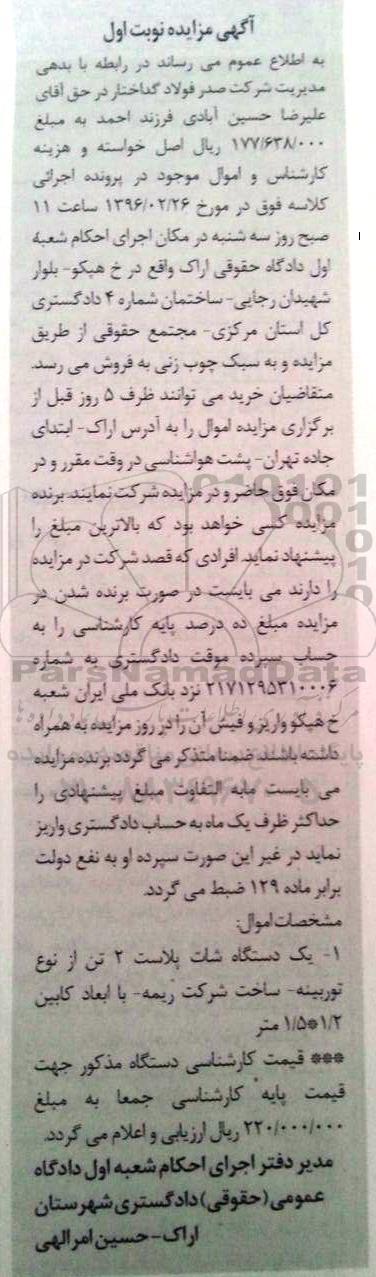 آگهی مزایده نوبت اول
به اطلاع عموم می رساند در رابطه با بدهی
مدیریت شرکت صدر فولاد گداختار در حق آقای
علیرضا حسین آبادی فرزند احمد به مبلغ
۱۷۷/۶۳۸/۰۰۰ ریال اصل خواسته و هزینه
کارشناس و اموال موجود در پرونده اجرائی
کلاسه فوق در مورخ ۱۳۹۶/۰۲/۲۶ ساعت ۱۱
صبح روز سه شنبه در مکان اجرای احکام شعبه
اول دادگاه حقوقی اراک واقع در خ هپکو- بلوار
شهیدان رجایی- ساختمان شماره ۴ دادگستری
کل استان مرکزی- مجتمع حقوقی از طریق
مزایده و به سبک چوب زنی به فروش می رسد.
متقاضیان خرید می توانند ظرف ۵ روز قبل از
برگزاری مزایده اموال را به آدرس اراک- ابتدای
جاده تهران- پشت هواشناسی در وقت مقرر و در
مکان فوق حاضر و در مزایده شرکت نمایند. برنده
مزایده کسی خواهد بود که بالاترین مبلغ را
پیشنهاد نماید. افرادی که قصد شرکت در مزایده
را دارند می بایست در صورت برنده شدن در
مزایده مبلغ ده درصد پایه کارشناسی را به
حساب سپرده موقت دادگستری به شماره
۲۱۷۱۲۹۵۳۱۰۰۰۶ نزد بانک ملی ایران شعبه
خ هپکو واریز و فیش آن را در روز مزایده به همراه
داشته باشند. ضمنا متذکر می گردد برنده مزایده
می بایست مابه التفاوت مبلغ پیشنهادی را
حداکثر ظرف یک ماه به حساب دادگستری واریز
نماید در غیر این صورت سپرده او به نفع دولت
برابر ماده ۱۲۹ ضبط می گردد.
مشخصات اموال:
۱- یک دستگاه شات پلاست ۲ تن از نوع
توربینه- ساخت شرکت ریمه- با ابعاد کابین
۱/۵*۱/۲ متر
*** قیمت کارشناسی دستگاه مذکور جهت
قیمت پایه کارشناسی جمعا به مبلغ
۲۲۰/۰۰۰/۰۰۰ ریال ارزیابی و اعلام می گردد.
مدیر دفتر اجرای احکام شعبه اول دادگاه
عمومی (حقوقی) دادگستری شهرستان
اراک- حسین امرالهی
ParsNamadData